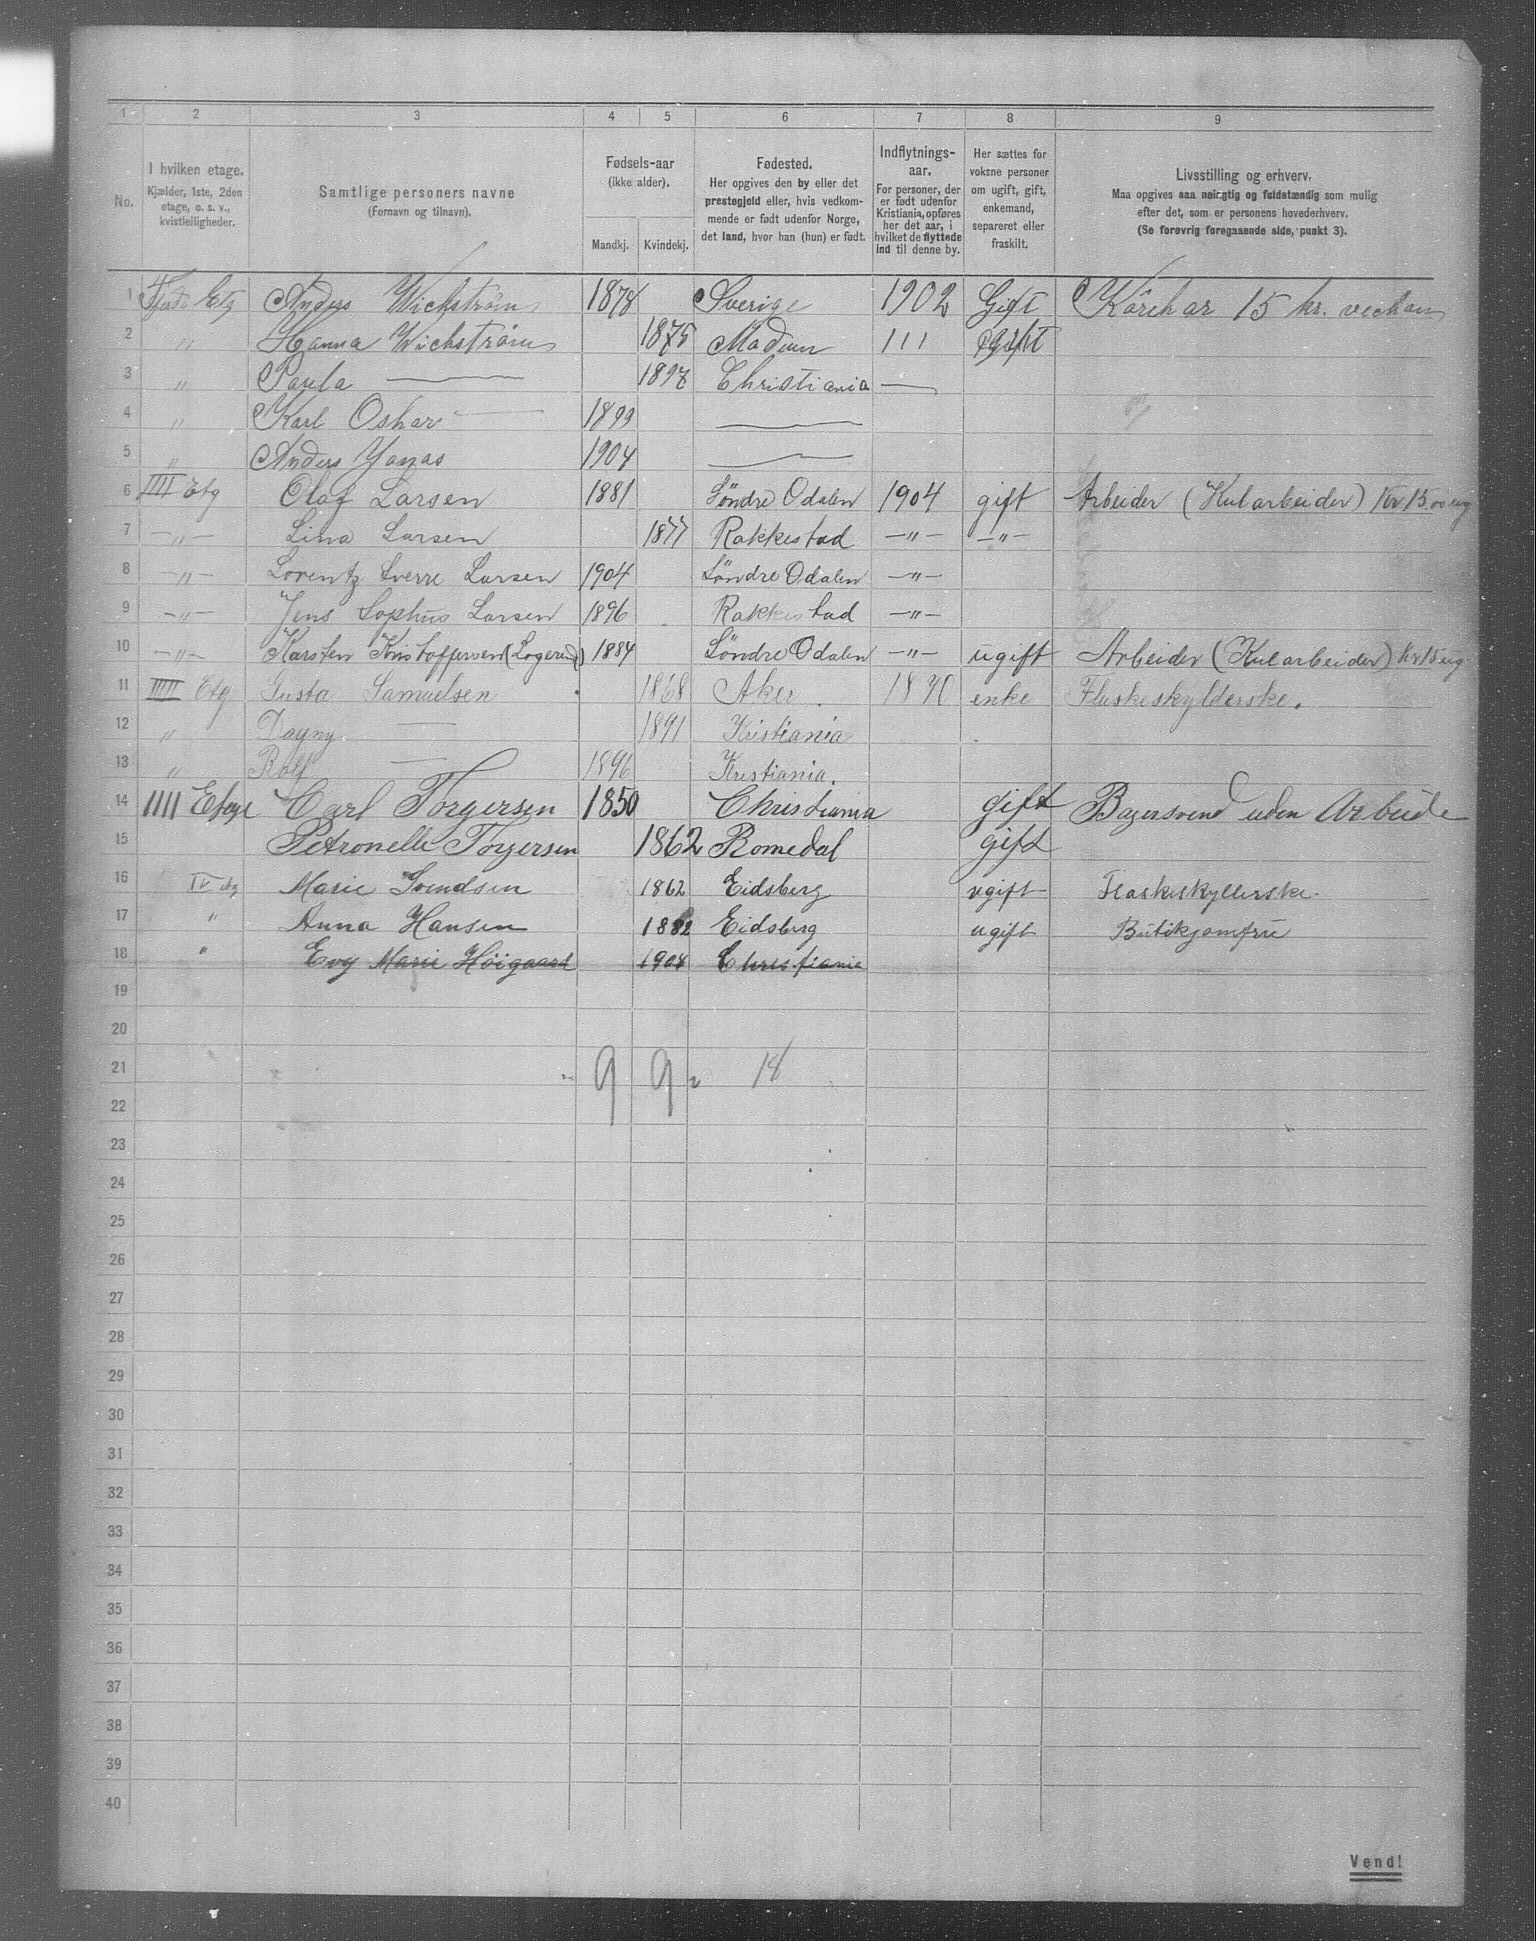 1 2 3 4 5 6 7 8 9
No.
I hvilken etage.
Kjælder, 1ste, 2den
etage, o. s. v.,
kvistleiligheder.
Samtlige personers navne
(Fornavn og tilnavn).
Fødsels-aar
(ikke alder).
Mandkj. Kvindekj.
Fødested.
Her opgives den by eller det
prestegjeld eller, hvis vedkom-
mende er født udenfor Norge,
det land, hvor han (hun) er født.
Indflytnings-
aar.
For personer, der
er født udenfor
Kristiania, opføres
her det aar, i
hvilket de flyttede
ind til denne by.
Her sættes for
voksne personer
om ugift, gift,
enkemand,
separeret eller
fraskilt.
Livsstilling og erhverv.
Maa opgives saa nøiagtig og fuldstændig som mulig
efter det, som er personens hovederhverv.
(Se forøvrig foregaaende side, punkt 3).
1 Etg Anders Wickstrøm 1878 Sverige 1902 Gift 15 kr.
2 " Hanna Wickstrøm 1875 Modum 111 Gift
3 " Paula — 1897 Christiania —
4 " Karl Oskar — 1899 —
5 " Anders Yonas 1904 —
6 IIII Etg Olaf Larsen 1881 Söndre Odalen 1904 gift Arbeider (Kularbeider) Kr 15.00 ug
7 —"— Lina Larsen 1877 Rakkestad —"— —"—
8 —"— Lorentz Sverre Larsen 1904 Söndre Odalen —"—
9 —"— Jens Sophus Larsen 1896 Rakkestad —"—
10 —"— Karsten Kristoffersen (Logerend) 1884 Söndre Odalen —"— ugift Arbeider (Kularbeider) Kr 15 ug.
11 IIII Etg Gusta Samuelsen 1868 Aker. 1890 enke Flaskeskylderske.
12 " Dagny — 1891 Kristiania
13 " Rolf — 1896 Kristiania.
14 IIII Etage Carl Torgersen 1850 Christiania gift Bagersvend uden Arbeide
15 Petronelle Torgersen 1862 Romedal gift
16 IV etg Marie Svendsen 1862 Eidsberg ugift Flaskeskyllerske.
17 " Anna Hansen 1882 Eidsberg ugift Butikjomfru
18 " Evy Marie Höigaard 1904 Christiania
19
20
21 9 9 18
22
23
24
25
26
27
28
29
30
31
32
33
34
35
36
37
38
39
40
Vend!